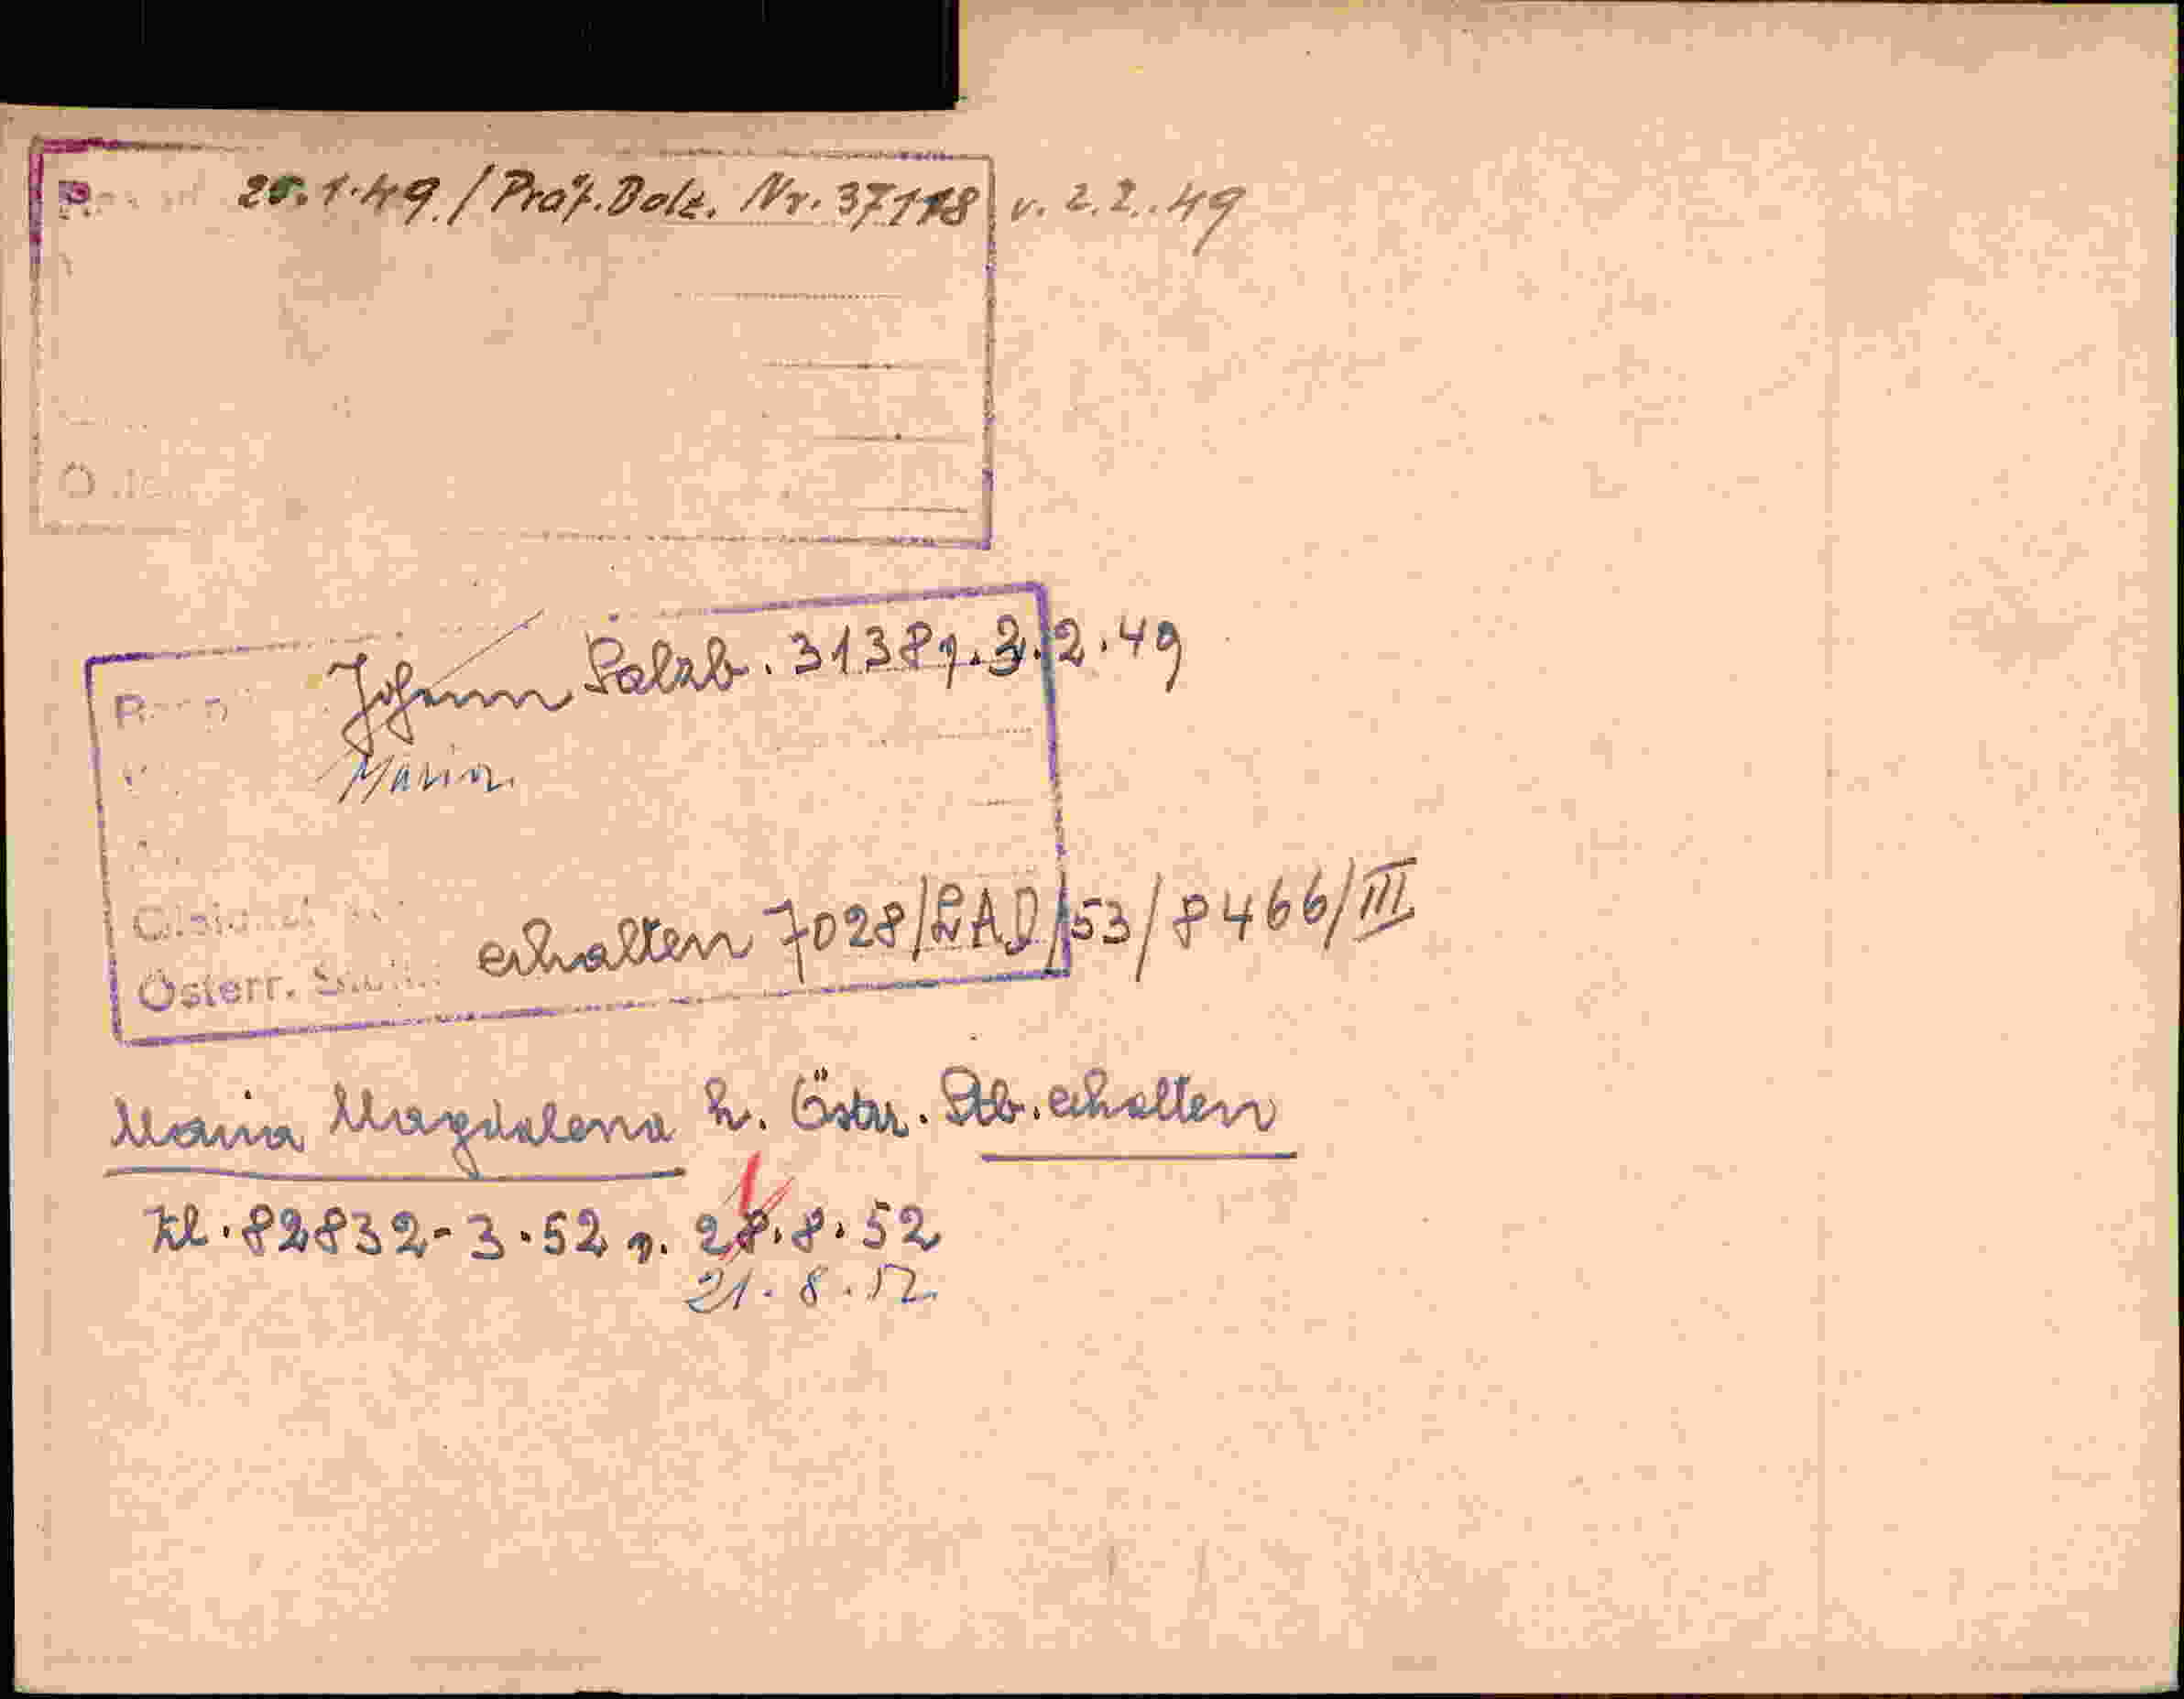 25.1.49./Präf. Bolz. Nr. 37118 v. 2.2.49
Johann Salzb. 31389.3.2.49
Maria
erhalten 7028/LAD/53/8466/III
Österr.
Maria Magdalena h. Östr. Stb. erhalten
Zl. 82832-3.52 v. 28.8.52
21.8.52